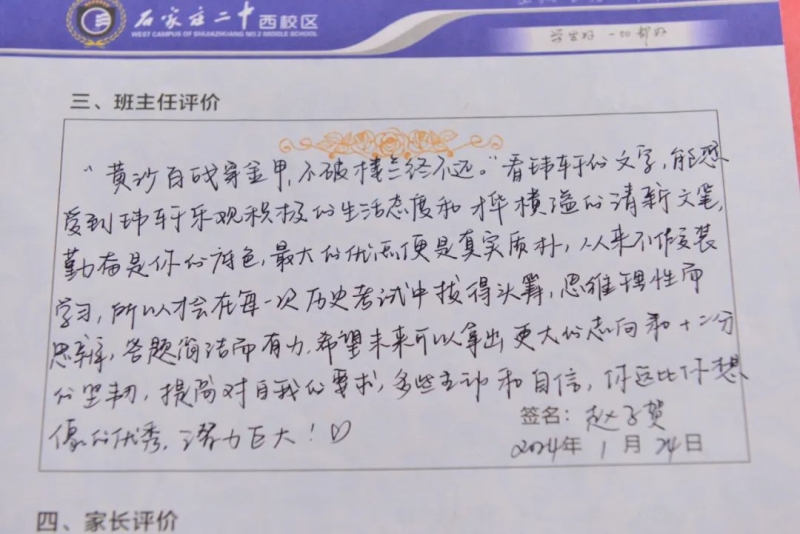 石家庄二中西校区
WEST CAMPUS OF SHIJIAZHUANG NO.2 MIDDLE SCHOOL
学生好 一切都好
三、班主任评价
“黄沙百战穿金甲,不破楼兰终不还。”看玮轩的文字,能感
受到玮轩乐观积极的生活态度和才华横溢的清新文笔,
勤奋是你的底色,最大的优点便是真实质朴,从来不假装
学习,所以才会在每一次历史考试中拔得头筹,思维理性而
思辨,答题简洁而有力,希望未来可以拿出更大的志向和十二分
的坚韧,提高对自我的要求,多些主动和自信,你远比你想
像的优秀,潜力巨大!♡
签名:赵子贺
2024年 1 月 24 日
四、家长评价